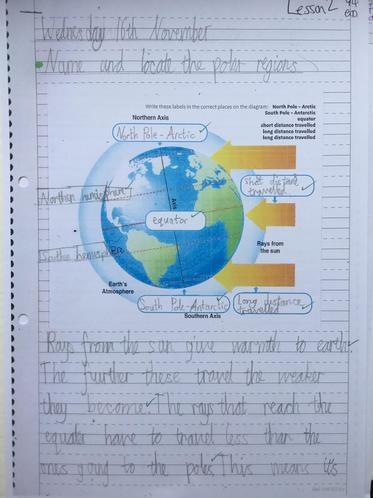 Lesson 2
Wednesday 16th November
Name and locate the polar regions.
Write these labels in the correct places on the diagram:
North Pole - Arctic
South Pole - Antarctic
equator
short distance travelled
long distance travelled
long distance travelled
Northern Axis
North Pole - Arctic
Shot distance
travelled
Northen hemisphere
Axis
equator
Southen hemisphere
Rays from
the sun
Earth's
Atmosphere
South Pole - Antarctic
Long distance
travelled
Southern Axis
Rays from the sun give warmth to earth.
The further these travel the weaker
they become. The rays that reach the
equator have to travel less than the
ones going to the poles. This means it's